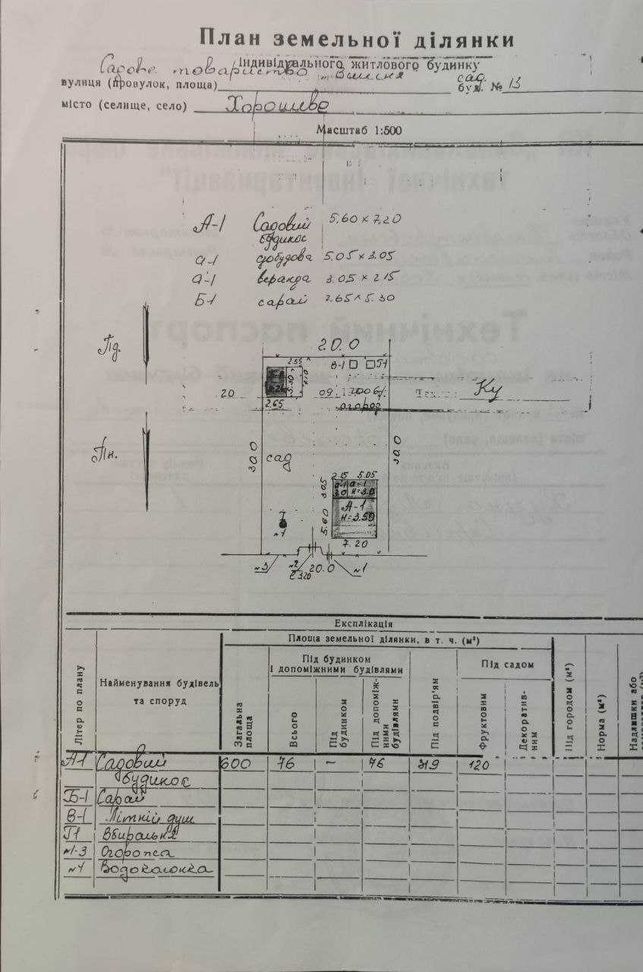 План земельної ділянки
індивідуального житлового будинку
Садове товариство "Вишня" сад.
вулиця (провулок, площа) буд. № 13
місто (селище, село) Хорошево
Масштаб 1:500
А-1 Садовий будинок 5,60 × 7,20
а-1 добудова 5.05 × 3.05
а-1 веранда 3.05 × 2.15
Б-1 сарай 2.65 × 5.30
Пд.
20.0
2.65
В-1 Г-1
20
09
2006
Ку
2.65
огород
Пн.
30.0
30.0
сад
2.15 5.05
3.05
А-1
Н=3.50
5.60
№4
7.20
№3
№2
20.0
№1
Експлікація
Літер по плану
Найменування будівель та споруд
Площа земельної ділянки, в т. ч. (м²)
Загальна площа
Під будинком і допоміжними будівлями
Всього
Під будинком
Під допоміжними будівлями
Під подвір'ям
Під садом
Фруктовим
Декоративним
Під городом (м²)
Норма (м²)
Надлишки або
А-1 Садовий будинок 600 76 — 76 319 120
Б-1 Сарай
В-1 Літній душ
Г1 Вбиральня
№1-3 Огорожа
№4 Водоколонка